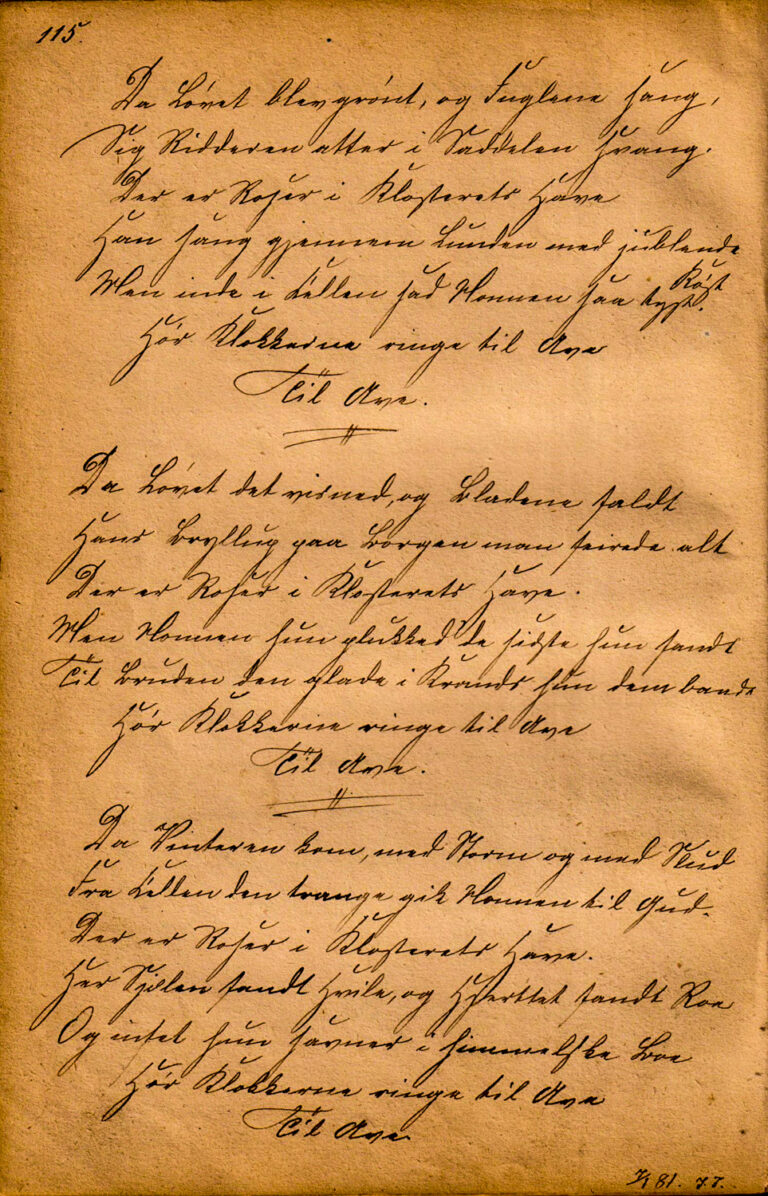 115.
Da Løvet blev grønt, og Fuglene sang,
Sig Ridderen atter i Saddelen svang.
Der er Roser i Klosterets Have
Han sang gjennem Lunden med jublende
Røst
Men inde i Cellen sad Nonnen saa tyst.
Hør Klokkerne ringe til Ave
Til Ave.
Da Løvet det visned, og Bladene faldt
Hans Bryllup paa Borgen man feirede alt
Der er Roser i Klosterets Have.
Men Nonnen hun plukked de sidste hun fandt
Til Bruden den glade i Krands hun dem bandt
Hør Klokkerne ringe til Ave
Til Ave.
Da Vinteren kom, med Storm og med Slud
Fra Cellen den trange gik Nonnen til Gud.
Der er Roser i Klosterets Have.
Her Sjælen fandt Hvile, og Hjerttet fandt Roe
Og intet hun savner i himmelske Boe
Hør Klokkerne ringe til Ave
Til Ave
81. J.J.